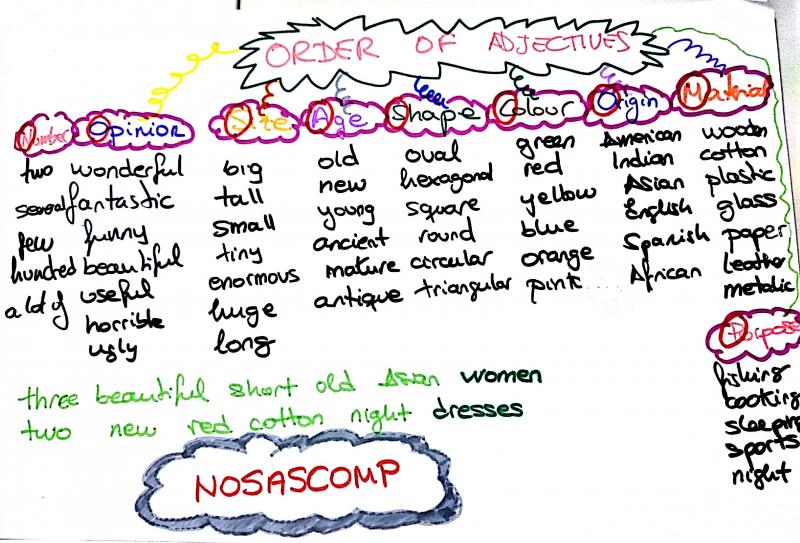 ORDER OF ADJECTIVES
Number
two
several
few
hundred
a lot of
Opinion
wonderful
fantastic
funny
beautiful
useful
horrible
ugly
Size
big
tall
small
tiny
enormous
huge
long
Age
old
new
young
ancient
mature
antique
Shape
oval
hexagonal
square
round
circular
triangular
Colour
green
red
yellow
blue
orange
pink
Origin
American
Indian
Asian
English
Spanish
African
Material
wooden
cotton
plastic
glass
paper
leather
metalic
Purpose
fishing
sleeping
sports
night
three beautiful short old Asian women
two new red cotton night dresses
NOSASCOMP